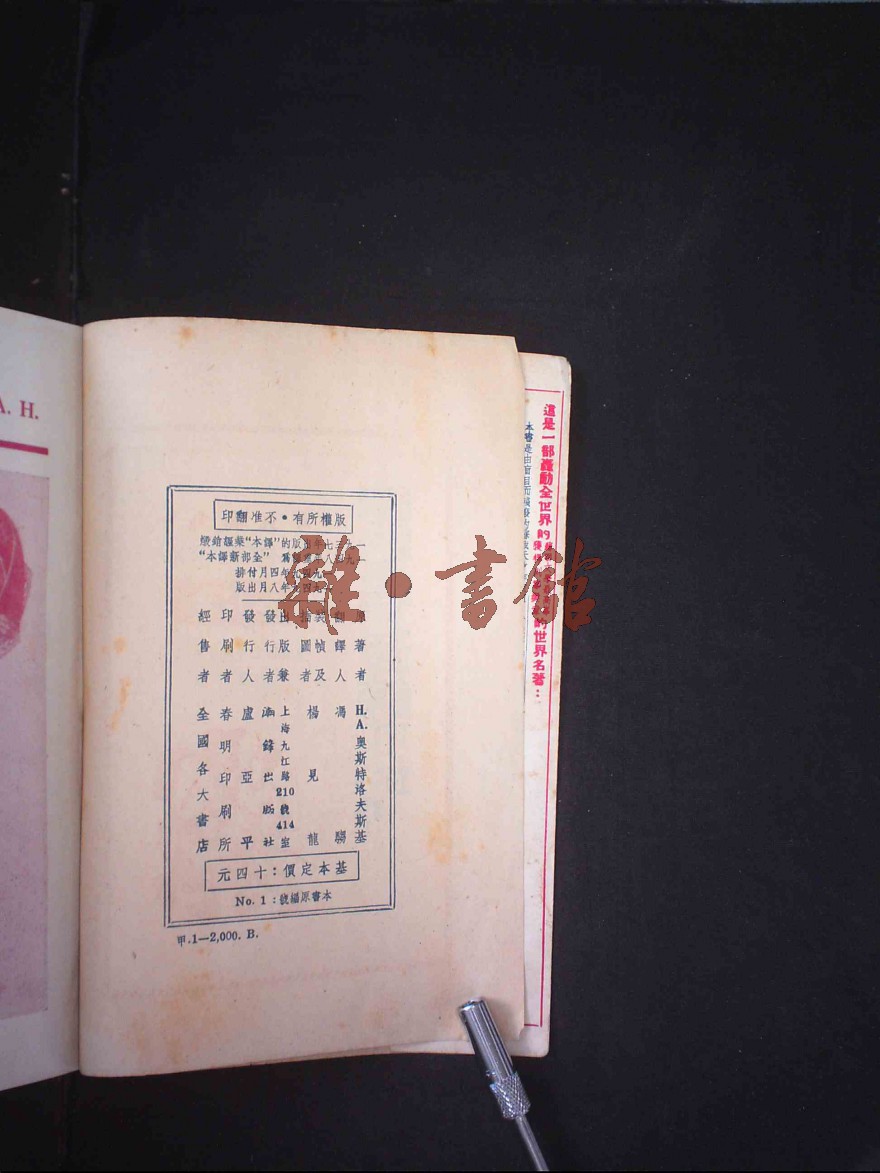 A. H.
版權所有・不准翻印
年四月付排
年八月出版
原著者 H. A. 奧斯特洛夫斯基
翻譯人 馮
裝幀及
插圖者 楊見龍
出版兼
發行者 上海九江路210號414室
發行人 盧亞平
印刷者 春明印刷所
經售者 全國各大書店
基本定價：十四元
本書原編號：No. 1
甲.1—2,000. B.
這是一部轟動全世界的
的世界名著：
雜・書館